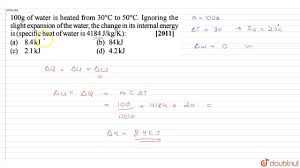 100g of water is heated from 30°C to 50°C. Ignoring the
slight expansion of the water, the change in its internal energy
is (specific heat of water is 4184 J/kg/K): [2011]
(a) 8.4 kJ (b) 84 kJ
(c) 2.1 kJ (d) 4.2 kJ
m = 100g
ΔT = 30 → 50 = 20°C
ΔW = 0
ΔQ = ΔU + ΔW
0
ΔU = ΔQ = mCΔT
= 100/1000 × 4184 × 20 =
ΔU = 8.4 kJ
doubtnut